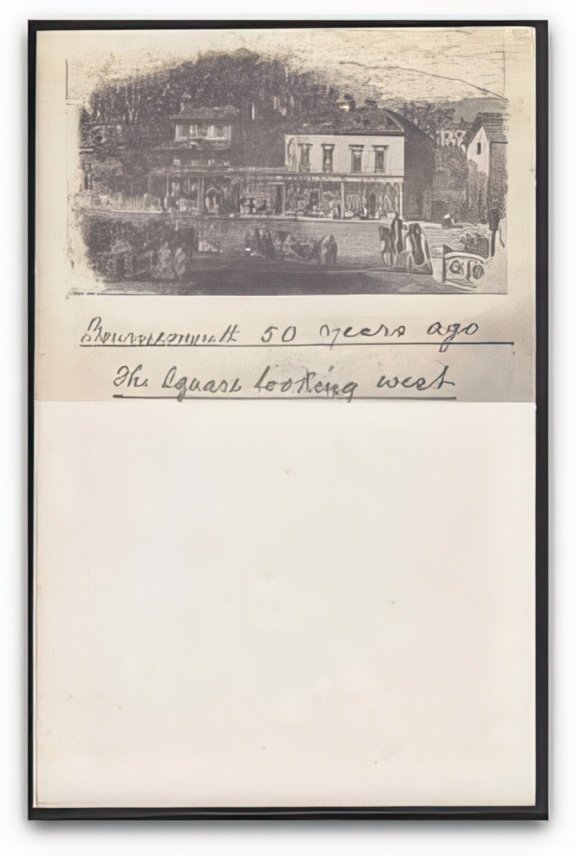 Bournemouth 50 years ago
The Square looking west